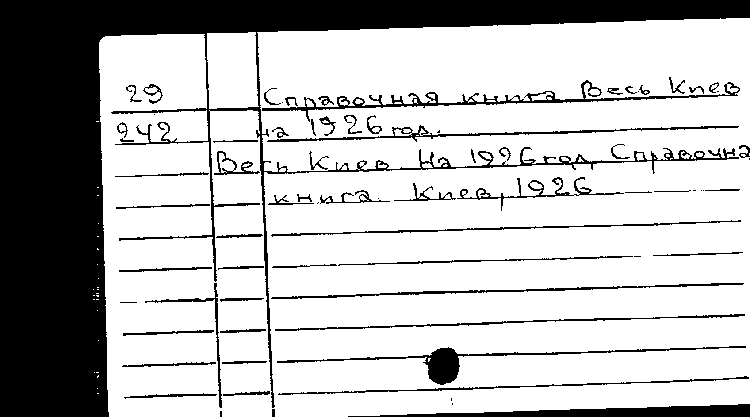 29 Справочная книга Весь Киев
242 на 1926 год.
Весь Киев на 1926 год, Справочна
книга. Киев, 1926